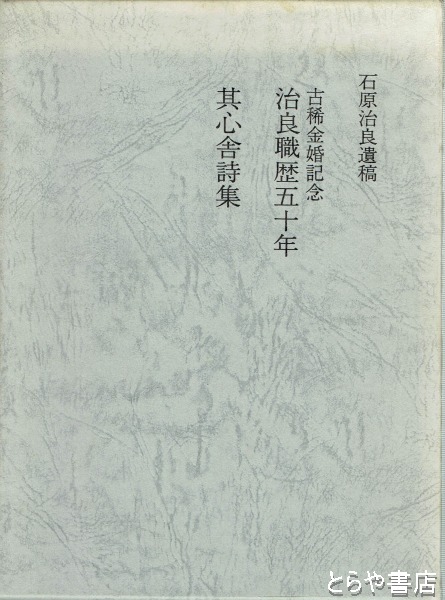 石原治良遺稿
古稀金婚記念
治良職歴五十年
其心舎詩集
とらや書店